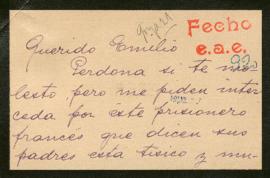 Fecho
e.a.e.
Querido Emilio
Perdona si te mo-
lesto, pero me piden inter
ceda por éste prisionero
francés que dicen sus
padres esta tisico y mu-